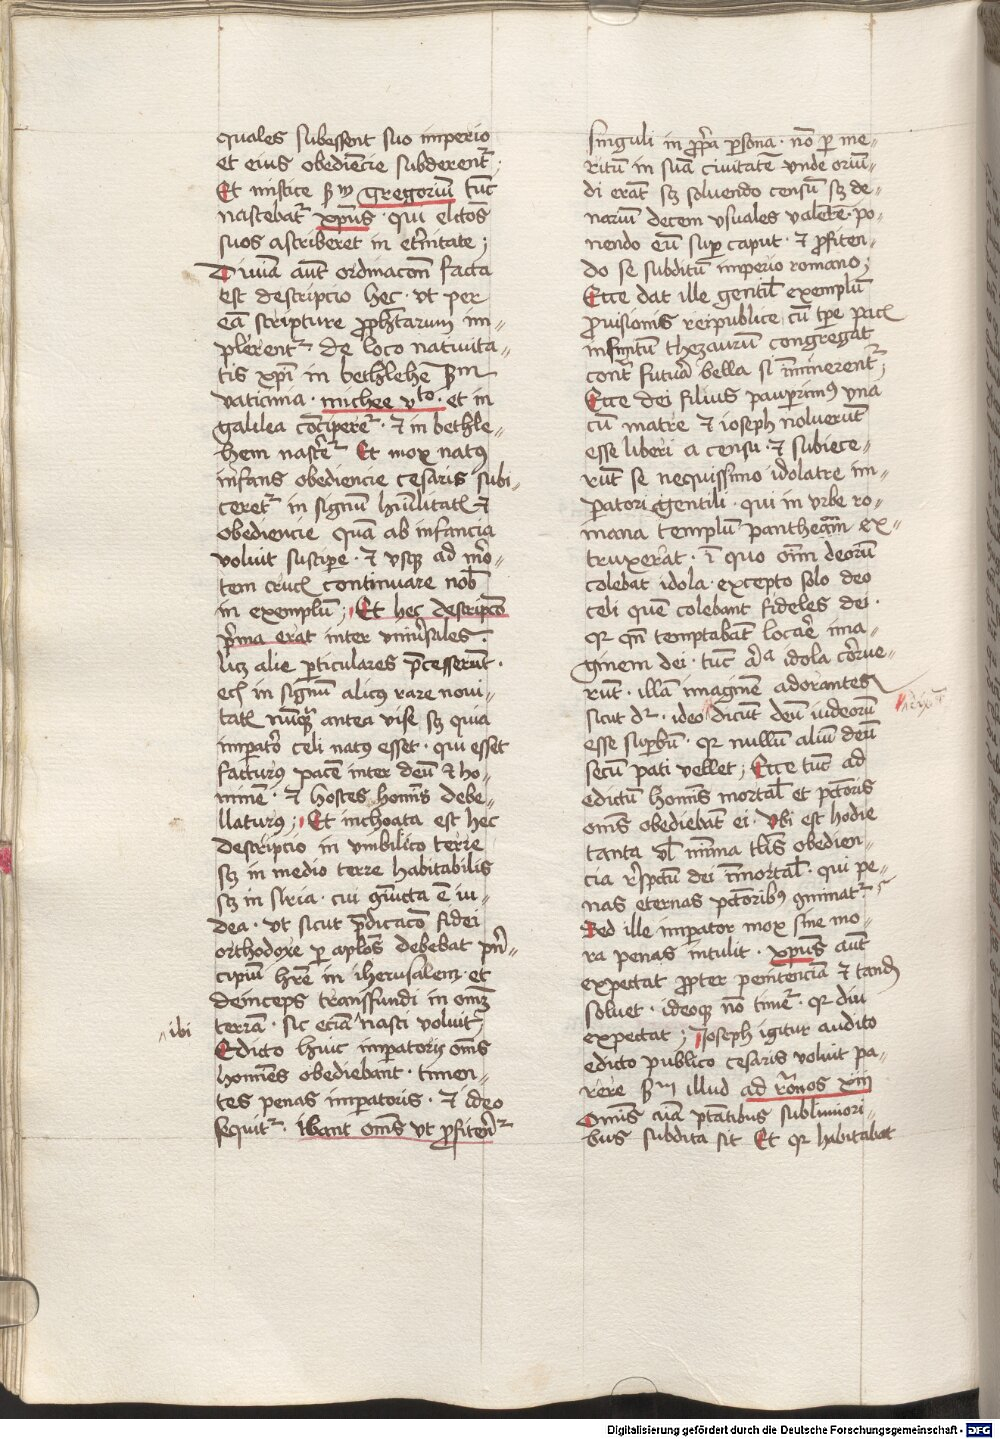 quales subessent suo imperio
et eius obediēcie subderent᷑;
Et mistice ẜm gregoriū tūc
nascebat᷑ xp̄us · qui electos
suos ascriberet in et̄nitate;
Diuīa aūt ordinacōm facta
est descripcio hec · vt per
eā scripture ꝓph̄tarum im„
plerent᷑ de loco natiuita„
tis xp̄i in bethlehē ẜm
vaticinia · michee vto · et in
galilea cōcipere᷑ · et in bethle„
hem nascere᷑ Et mox natꝰ
infans obediencie cesaris subi„
ceret᷑ in signū hūilitatꝭ et
obediencie quā ab infancia
voluit suscipe · et vsqꝫ ad mor„
tem crucꝭ continuare nob̄
in exemplū; Et hec descripcō
p̄ma erat inter vniu̓sales ·
licꝫ alie ꝑticulares p̄cesserūt ·
ecꝭ in signū alicꝰ rare noui„
tatꝭ nūqꝫ antea vise sꝫ quia
imperator celi natꝰ esset · qui esset
facturꝰ pacē inter deū et ho„
minē · et hostes hominis debe„
llaturꝰ; Et inchoata est hec
descripcio in vmbilico terre
sꝫ in medio terre habitabilis
sꝫ in siria · cui giūcta ē iu„
dea · vt sicut p̄dicacō fidei
orthodoxe ꝑ apl̄os debebat prin„
cipiū hr̄e in iherusalem · et
deinceps transfundi in omnē
terrā · sic eciā nasci voluit;
ibi
Edicto huic imperatoris om̄s
homīes obediebant · timen„
tes penas imperatoris · et ideo
sequit᷑ · ibant om̄s vt ꝓfiterent᷑
singuli in ꝓp̄a ꝑsona · nō ꝑ me„
ritū in suā ciuitatē vnde oriū„
di erāt sꝫ soluendo censū sꝫ de„
narium decem vsuales valētē · po„
nendo eū suꝑ caput · et ꝓfiten„
do se subditū imperio romano;
Ecce dat ille gentil̄ exemplū
ꝓuisionis reipublice cū tꝑe pacꝭ
infinitū thezaurū congregat
contra futura bella si īminerent᷑;
Ecce dei filius pauꝑrimꝰ vna
cū matre et ioseph noluerūt
esse liberi a censu · et subiece„
rūt se nequissimo idolatre im„
peratori gentili · qui in vrbe ro„
mana templū pantheam ex„
truxerat · ī quo om̄m deorū
colebat idola · excepto solo deo
celi quē colebant fideles dei ·
qr qn̄ temptabāt locare ima„
ginem dei · tūc alia idola corrue„
rūt · illā imaginē adorantes
sicut dr᷑ · ideo dicūt deū iudeorū
esse suꝑbū · qr nullū aliū deū
secū pati vellet; Ecce tūc ad
edictū hominis mortal̄ et pctōris
om̄s obediebāt ei · vbi est hodie
tanta vl̄ minima tal̄is obedien„
cia respectu dei īmortal̄ · qui pe„
nas eternas pctōribꝰ cōminat᷑
Sed ille imperator mox sine mo„
ra penas intulit · xp̄us aūt
expectat ꝓpter penitenciā et tandē
soluet · ideoqꝫ nō timet᷑ · qr diu
expectat; Ioseph igitur audito
edicto publico cesaris voluit pa„
rere ẜm illud ad rōnos xiii
Omnis aīa ptātibus sublimiori„
bus subdita sit Et qr habitabat
Digitalisierung gefördert durch die Deutsche Forschungsgemeinschaft - DFG